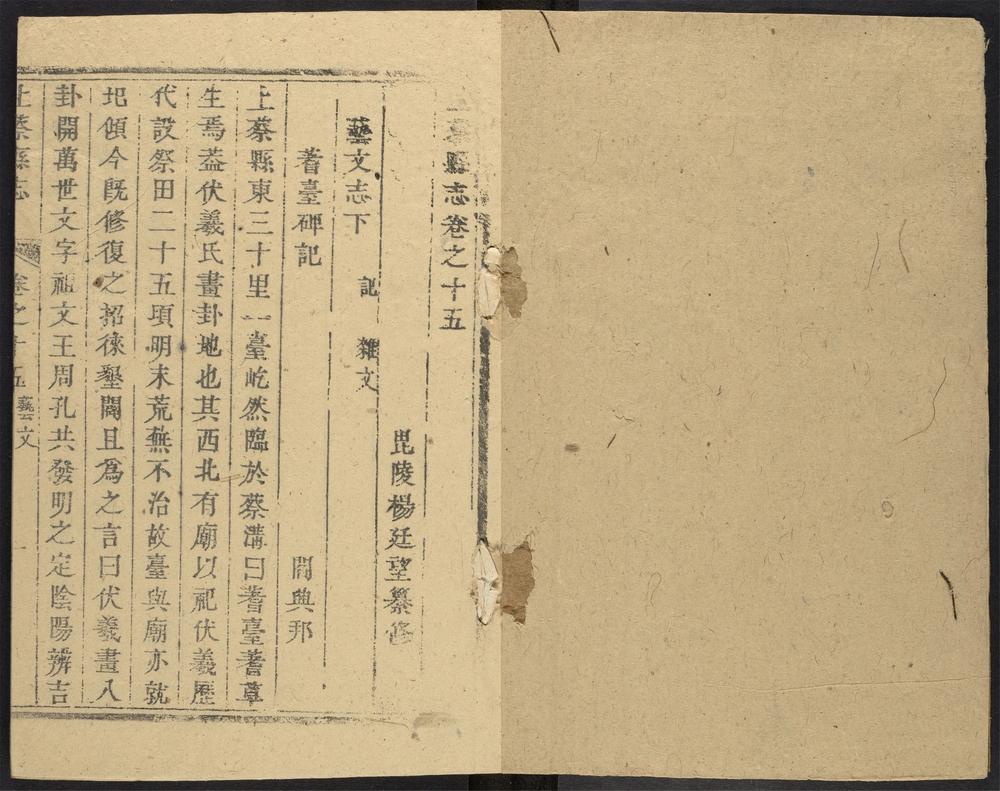 上蔡縣志卷之十五
毘陵楊廷望纂修
藝文志下 記 雜文
蓍臺碑記 閻興邦
上蔡縣東三十里一臺屹然臨於蔡溝曰蓍臺蓍草
生焉葢伏羲氏畫卦地也其西北有廟以祀伏羲歷
代設祭田二十五頃明末荒蕪不治故臺與廟亦就
圯傾今旣修復之招徠墾闢且爲之言曰伏羲畫八
卦開萬世文字祖文王周孔共發明之定陰陽辨吉
上蔡縣志 卷之十五 藝文